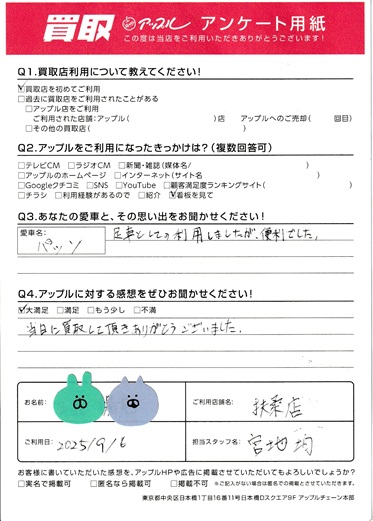 買取 アップル アンケート用紙
この度は当店をご利用いただきありがとうございます!
Q1.買取店利用について教えてください!
☑買取店を初めてご利用
□過去に買取店をご利用されたことがある
□アップル店をご利用
ご利用された店舗:アップル( )店 アップルへのご売却( 回目)
□その他の買取店( )
Q2.アップルをご利用になったきっかけは?(複数回答可)
□テレビCM □ラジオCM □新聞・雑誌(媒体名/ )
□アップルのホームページ □インターネット(サイト名 )
□Googleクチコミ □SNS □YouTube □顧客満足度ランキングサイト( )
□チラシ □利用経験があるので □紹介 ☑看板を見て
Q3.あなたの愛車と、その思い出をお聞かせください!
愛車名:
パッソ
足車としての利用しましたが、便利でした。
Q4.アップルに対する感想をぜひお聞かせください!
☑大満足 □満足 □もう少し □不満
当日に買取して頂きありがとうございました。
お名前:
ご利用店舗名: 扶桑店
ご利用日: 2025/9/6
担当スタッフ名: 宮地 均
お客様に書いていただいた感想を、アップルHPや広告に掲載させていただいてもよろしいでしょうか?
□実名で掲載可 □匿名なら掲載可 □掲載不可 ※ご記入がない場合は匿名での掲載とさせていただきます。
東京都中央区日本橋1丁目16番11号日本橋Dスクエア9F アップルチェーン本部